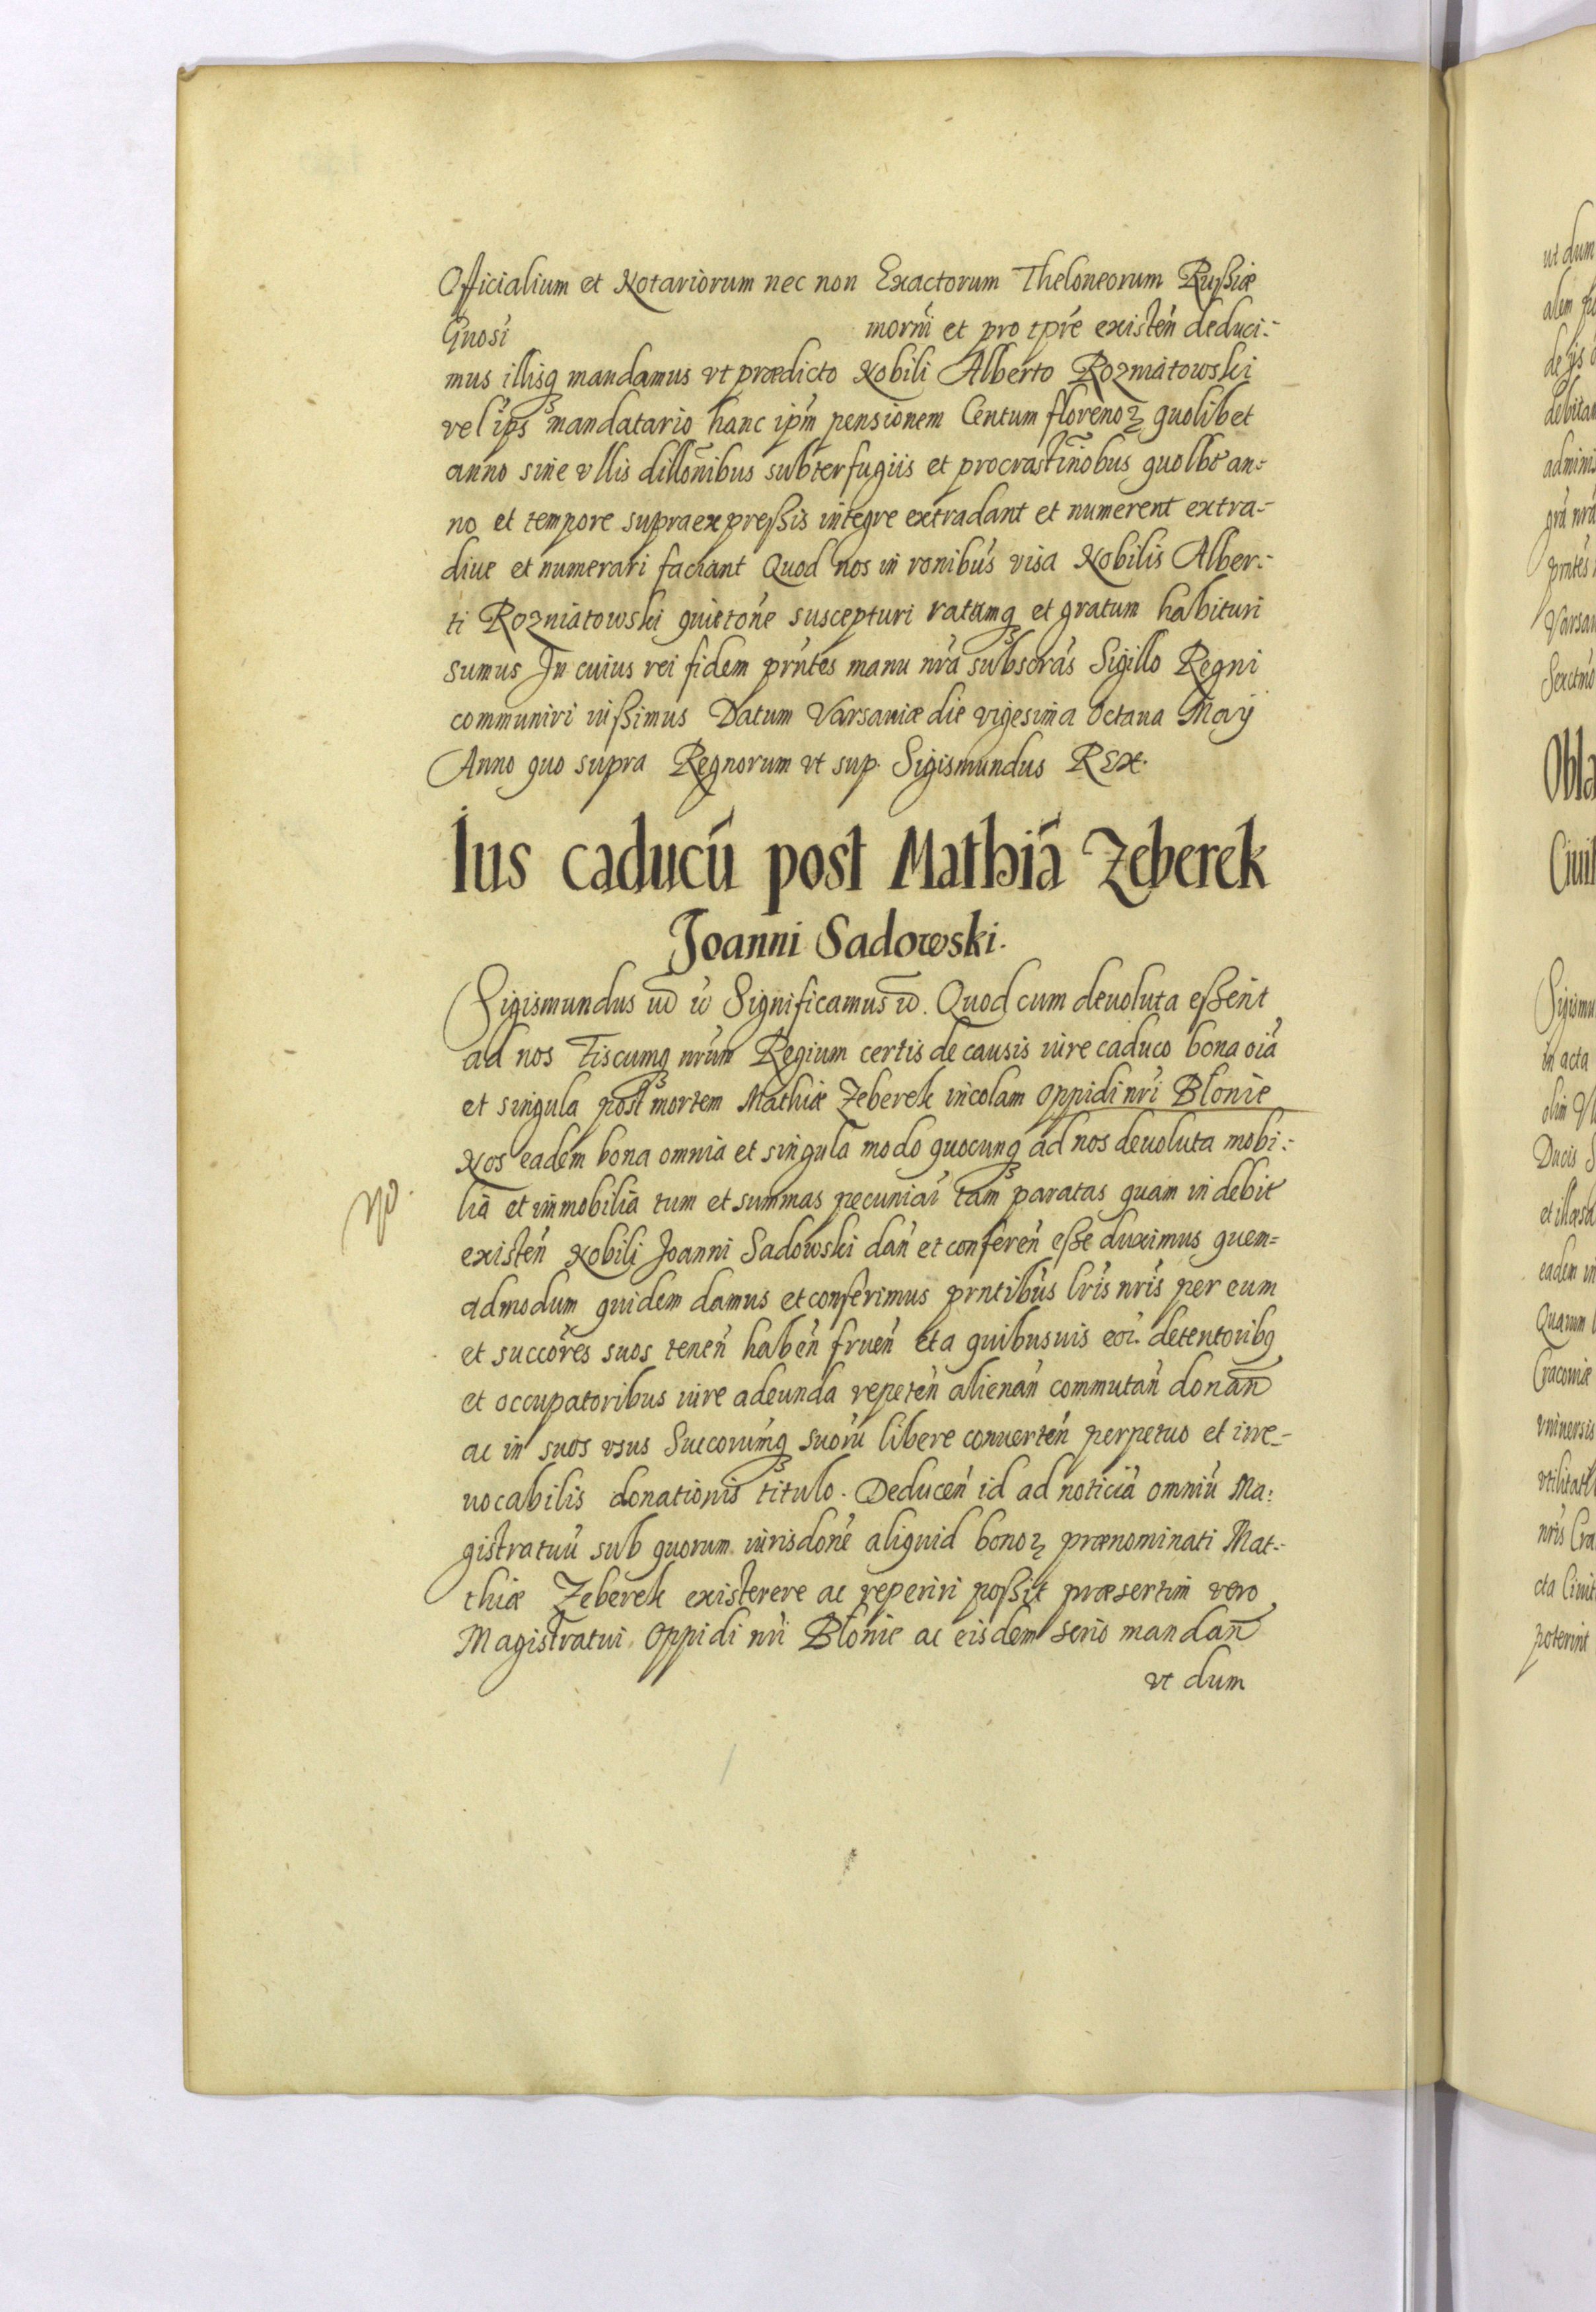 Officialium et Notariorum nec non Exactorum Theloneorum Rußiæ
Gnosi mornḿ et pro tṕre existeń deduci:-
mus illisq mandamus vt prædicto Nobili Alberto Rozniatowski
vel iṕs mandatario hanc iṕm pensionem Centum florenoꝝ quolibet
anno sine vllis dillonibus subterfugiis et procrastinobus quolbt an-
no et tempore supraexpreßis integre extradant et numerent extra-
diue et numerari faciant Quod nos in ronibus visa Nobilis Alber:-
ti Rozniatowski quietone suscepturi ratumq et gratum habituri
sumus In cuius rei fidem prntes manu nra subscras Sigillo Regni
communiri iußimus Datum Varsauiæ die vigesima Octaua Maÿ
Anno quo supra Regnorum vt sup. Sigismundus REX.
Ius caducú post Mathiá Zeberek
Joanni Sadowski.
Sigismundus Significamus. Quod cum deuoluta eßent
ad nos Fiscumq nrum Regium certis de causis iure caduco bona oiá
et singula post mortem Mathiæ Zeberek incolam oppidi nri Błonie
Nos eadem bona omnia et singula modo quocunq ad nos deuoluta mobi:-
lia et immobilia tum et summas pecuniar tam paratas quam in debit
existeń Nobili Joanni Sadowski dań et confereń eße duximus quem-
admodum quidem damus et conferimus prntibus lris nris per eum
et succores suos teneń habeń frueń et a quibusuis eor. detentoribq
et occupatoribus iure adeunda repeteń alienań commutań donań
ac in suos vsus Succorumq suorú libere conuerteń perpetuo et irre-
uocabilis donationis titulo. Deduceń id ad noticiá omniú Ma:
gistratuú sub quorum iurisdone aliquid bonoꝝ prænominati Mat:-
thiæ Zeberek existerere ac reperiri poßit præsertim vero
Magistratui Oppidi nri Błonie ac eisdem serio mandań
vt dum